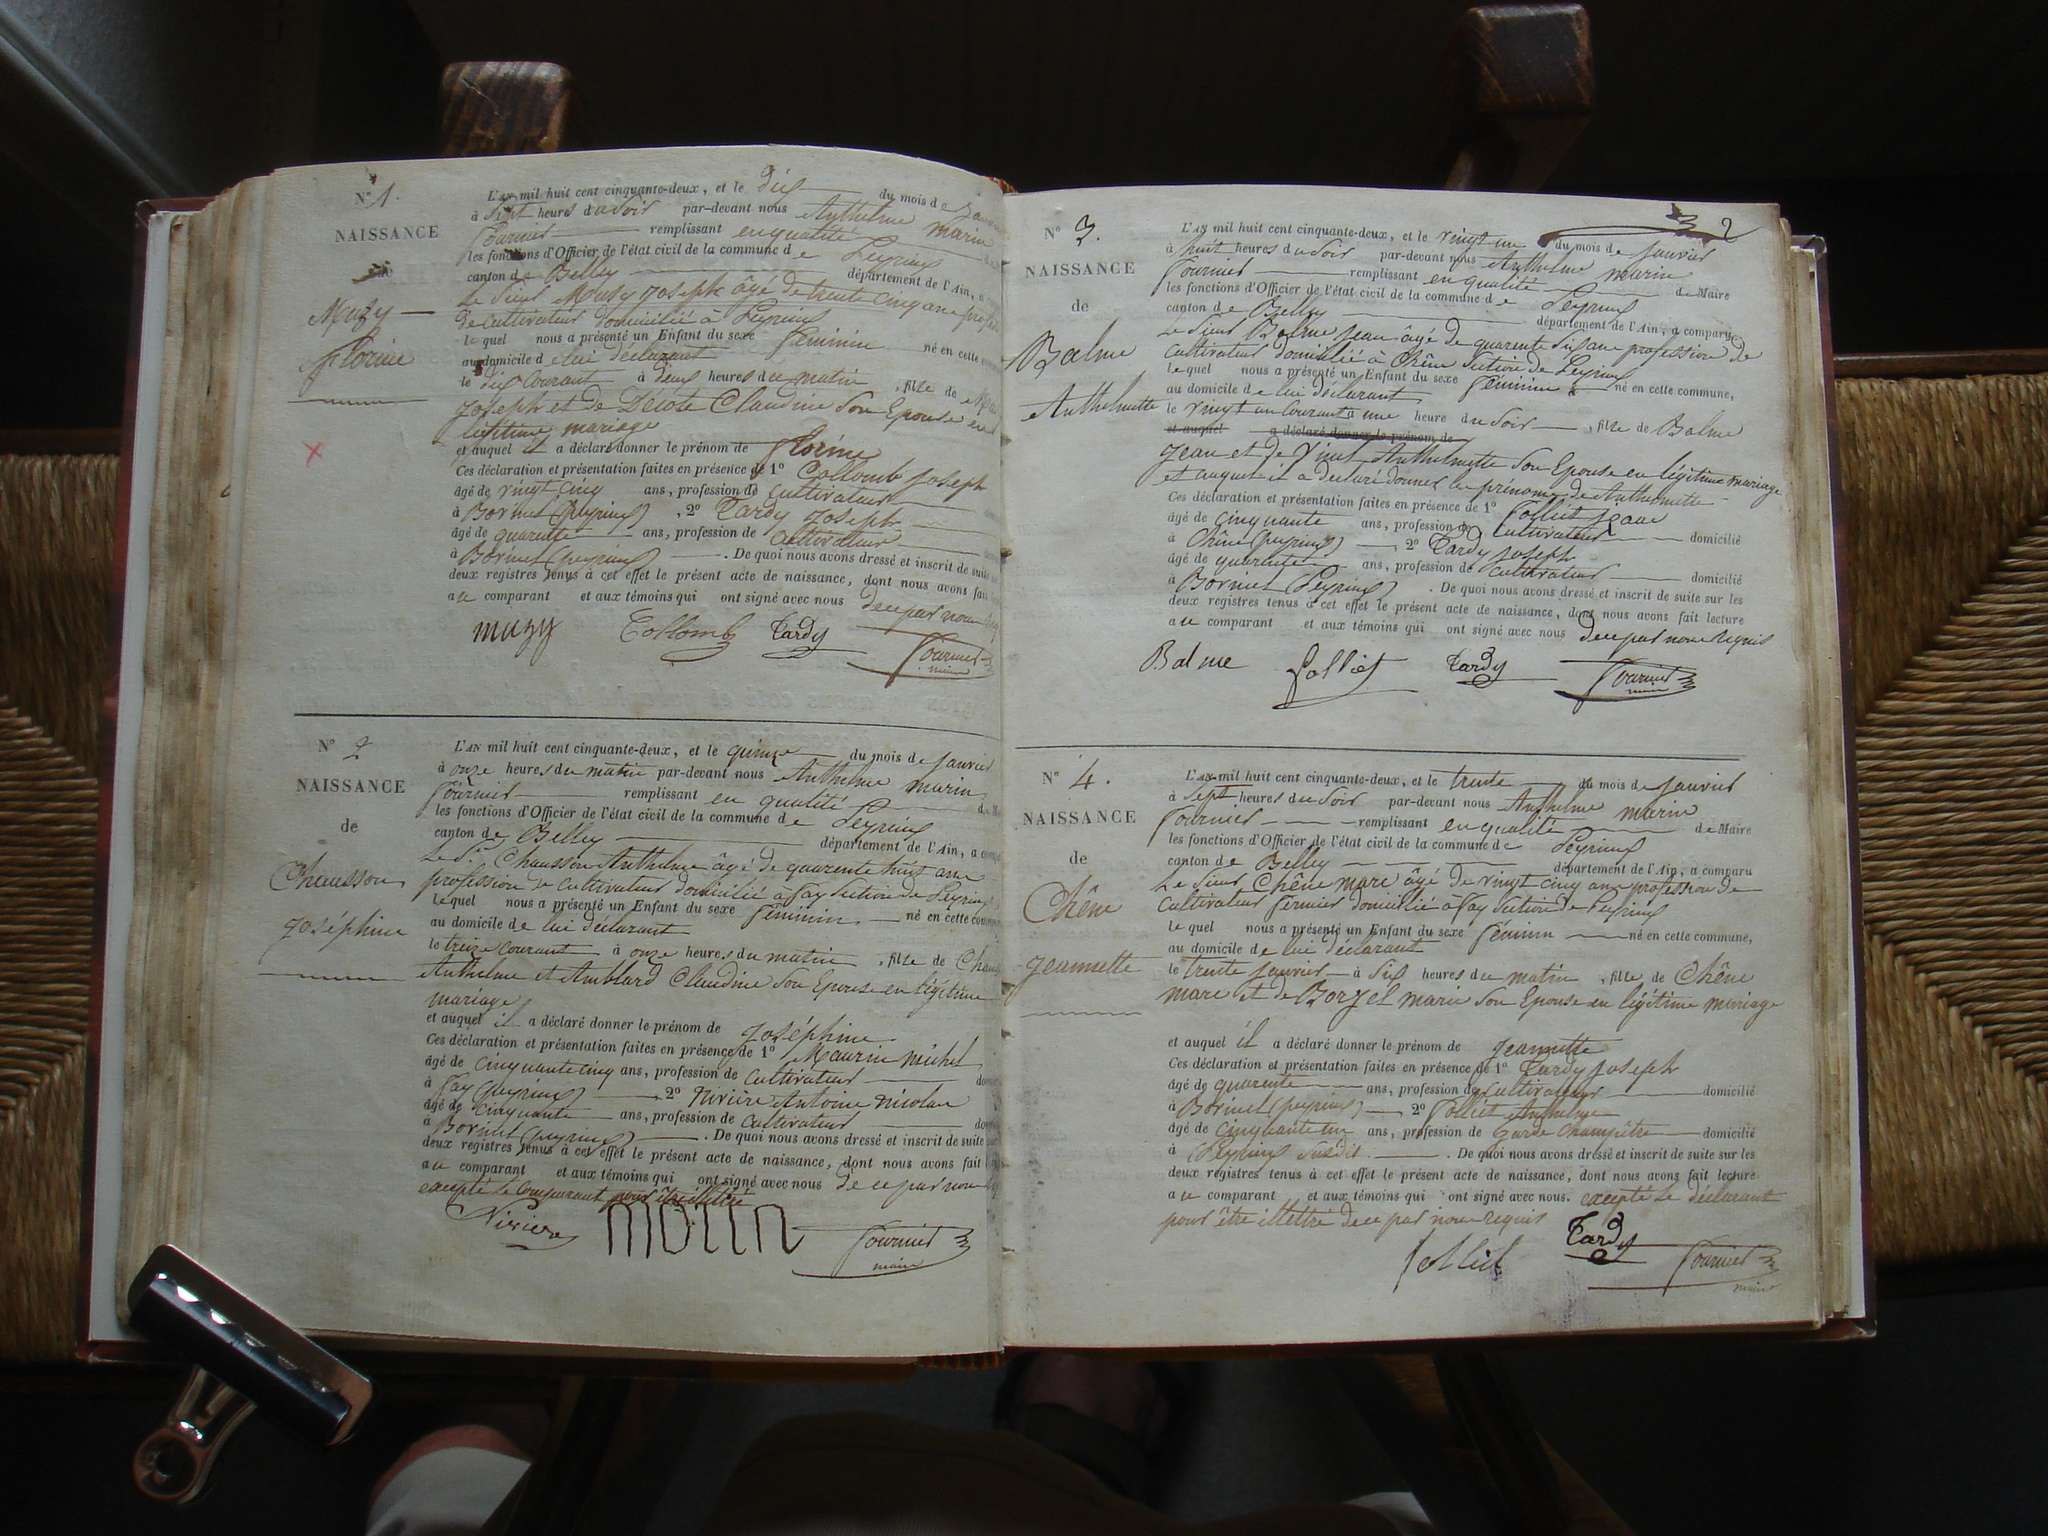 N° 1.
NAISSANCE
de
Muzy
florine
L'AN mil huit cent cinquante-deux, et le dix du mois de
à Sept heures du Soir par-devant nous Anthelme marin
Fournier remplissant en qualité
les fonctions d'Officier de l'état civil de la commune de Peyrieux
canton de Belley département de l'Ain, a
Le Sieur Muzy Joseph âgé de trente cinq ans
de cultivateur domicilié à Peyrieux
le quel nous a présenté un Enfant du sexe féminin né en cette
au domicile de lui déclarant
le dix Courant à deux heures du matin, fille de
Joseph et de Claudine Son Epouse en
légitime mariage
et auquel il a déclaré donner le prénom de florine
Ces déclaration et présentation faites en présence de 1° Collomb Joseph
âgé de vingt cinq ans, profession de cultivateur
à Borinet (peyrieux), 2° Tardy Joseph
âgé de quarante ans, profession de cultivateur
à Borinet (peyrieux). De quoi nous avons dressé et inscrit de suite
deux registres tenus à cet effet le présent acte de naissance, dont nous avons fait
au comparant et aux témoins qui ont signé avec nous de ce par nous
muzy Collomb Tardy Fournier
maire
N° 2
NAISSANCE
de
Chausson
Joséphine
L'AN mil huit cent cinquante-deux, et le quinze du mois de Janvier
à onze heures du matin par-devant nous Anthelme marin
Fournier remplissant en qualité
les fonctions d'Officier de l'état civil de la commune de Peyrieux
canton de Belley département de l'Ain, a
Le Sr Chausson Anthelme âgé de quarente huit ans
profession de cultivateur domicilié à fay Section de Peyrieux
le quel nous a présenté un Enfant du sexe féminin né en cette
au domicile de lui déclarant
le treize courant à onze heures du matin, fille de
Anthelme et Amblard Claudine Son Epouse en légitime
mariage
et auquel il a déclaré donner le prénom de Joséphine
Ces déclaration et présentation faites en présence de 1° michel
âgé de cinquante cinq ans, profession de cultivateur
à fay (peyrieux) 2° Nivière Antoine Nicolas
âgé de cinquante ans, profession de cultivateur
à Borinet (peyrieux). De quoi nous avons dressé et inscrit de suite
deux registres tenus à cet effet le présent acte de naissance, dont nous avons fait
au comparant et aux témoins qui ont signé avec nous de ce par nous
excepté le comparant pour être illettré
Nivière Fournier
maire
2
N° 3.
NAISSANCE
de
Balme
Anthelmette
L'AN mil huit cent cinquante-deux, et le vingt un du mois de Janvier
à huit heures du Soir par-devant nous Anthelme marin
Fournier remplissant en qualité de Maire
les fonctions d'Officier de l'état civil de la commune de Peyrieux
canton de Belley département de l'Ain, a comparu
Le Sieur Balme Jean âgé de quarente six ans profession de
cultivateur domicilié à Chêne Section de Peyrieux
le quel nous a présenté un Enfant du sexe féminin né en cette commune,
au domicile de lui déclarant
le vingt un Courant à une heure du Soir, fille de Balme
et auquel a déclaré donner le prénom de
Jean et de Vinit Anthelmette Son Epouse en légitime mariage
et auquel il a déclaré donner le prénom de Anthelmette
Ces déclaration et présentation faites en présence de 1° Folliet Jean
âgé de cinquante ans, profession de cultivateur domicilié
à Chêne (peyrieux) 2° Tardy Joseph
âgé de quarente ans, profession de cultivateur domicilié
à Borinet (Peyrieux). De quoi nous avons dressé et inscrit de suite sur les
deux registres tenus à cet effet le présent acte de naissance, dont nous avons fait lecture
au comparant et aux témoins qui ont signé avec nous de ce par nous requis
Balme folliet Tardy Fournier
maire
N° 4.
NAISSANCE
de
Chêne
Jeannette
L'AN mil huit cent cinquante-deux, et le trente du mois de Janvier
à Sept heures du Soir par-devant nous Anthelme marin
Fournier remplissant en qualité de Maire
les fonctions d'Officier de l'état civil de la commune de Peyrieux
canton de Belley département de l'Ain, a comparu
Le Sieur Chêne marc âgé de vingt cinq ans profession de
cultivateur fermier domicilié à fay Section de Peyrieux
le quel nous a présenté un Enfant du sexe féminin né en cette commune,
au domicile de lui déclarant
le trente Janvier à Six heures du matin, fille de Chêne
marc et de marie Son Epouse en légitime mariage
et auquel il a déclaré donner le prénom de Jeannette
Ces déclaration et présentation faites en présence de 1° Tardy Joseph
âgé de quarente ans, profession de cultivateur domicilié
à Borinet (peyrieux) 2° Folliet Anthelme
âgé de cinquante un ans, profession de Garde champêtre domicilié
à Peyrieux Susdit. De quoi nous avons dressé et inscrit de suite sur les
deux registres tenus à cet effet le présent acte de naissance, dont nous avons fait lecture
au comparant et aux témoins qui ont signé avec nous. excepté le déclarant
pour être illettré de ce par nous requis
folliet Tardy Fournier
maire